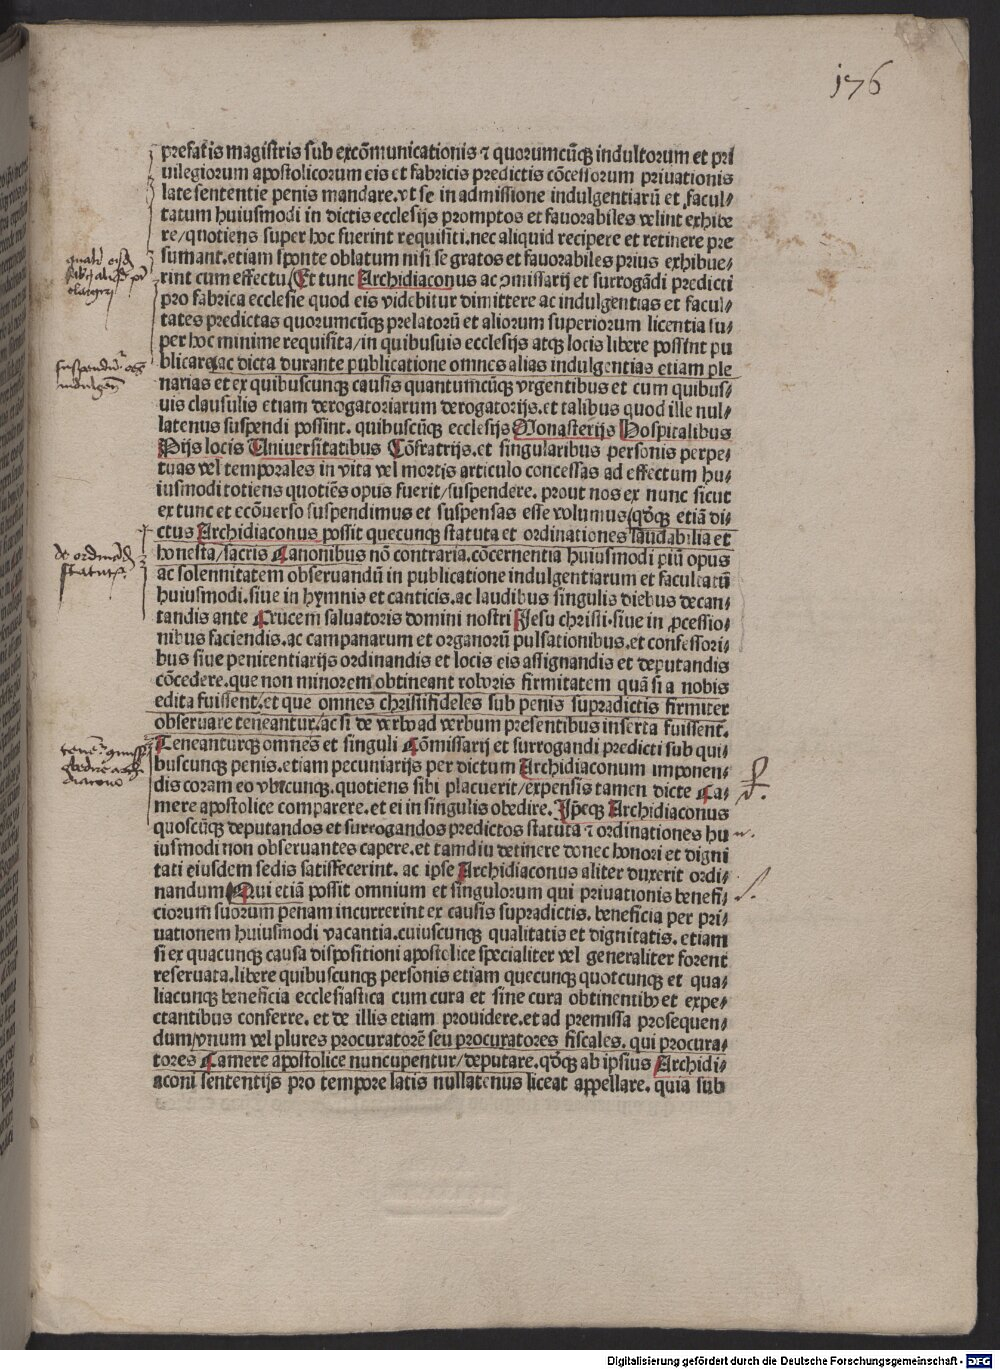 176
prefatis magistris sub excōmunicationis ⁊ quorumcūqꝫ indultorum et pri
uilegiorum apostolicorum eis et fabricis predictis cōcessorum priuationis
late sententie penis mandare. vt se in admissione indulgentiarū et facul⸗
tatum huiusmodi in dictis ecclesijs promptos et fauorabiles velint exhibe
re/quotiens super hoc fuerint requisiti. nec aliquid recipere et retinere pre
sumant. etiam sponte oblatum nisi se gratos et fauorabiles prius exhibue⸗
rint cum effectu/Et tunc Archidiaconus ac ꝯmissarij et surrogādi predicti
pro fabrica ecclesie quod eis videbitur dimittere ac indulgentias et facul⸗
tates predictas quorumcūqꝫ prelatorū et aliorum superiorum licentia su⸗
per hoc minime requisita/in quibusuis ecclesijs atqꝫ locis libere possint pu
blicare/ac dicta durante publicatione omnes alias indulgentias etiam ple
narias et ex quibuscunqꝫ causis quantumcūqꝫ vrgentibus et cum quibus⸗
uis clausulis etiam derogatoriarum derogatorijs. et talibus quod ille nul⸗
latenus suspendi possint. quibuscūqꝫ ecclesijs Monasterijs Hospitalibus
Pijs locis Uniuersitatibus Cōfratrijs. et singularibus personis perpe⸗
tuas vel temporales in vita vel mortis articulo concessas ad effectum hu⸗
iusmodi totiens quotiēs opus fuerit/suspendere. prout nos ex nunc sicut
ex tunc et ecōuerso suspendimus et suspensas esse volumus/qđqꝫ etiā di⸗
ctus Archidiaconus possit quecunqꝫ statuta et ordinationes laudabilia et
honesta/sacris Canonibus nō contraria. cōcernentia huiusmodi piū opus
ac solennitatem obseruandū in publicatione indulgentiarum et facultatū
huiusmodi. siue in hymnis et canticis. ac laudibus singulis diebus decan⸗
tandis ante Crucem saluatoris domini nostri Jesu christi. siue in ꝓcessio⸗
nibus faciendis. ac campanarum et organorū pulsationibus. et confessori⸗
bus siue penitentiarijs ordinandis et locis eis assignandis et deputandis
cōcedere. que non minorem obtineant roboris firmitatem quā si a nobis
edita fuissent. et que omnes christifideles sub penis supradictis firmiter
obseruare teneantur. ac si de verbo ad verbum presentibus inserta fuissent.
Teneanturqꝫ omnes et singuli Cōmissarij et surrogandi predicti sub qui⸗
buscunqꝫ penis. etiam pecuniarijs per dictum Archidiaconum imponen⸗
dis coram eo vbicunqꝫ. quotiens sibi placuerit/expensis tamen dicte Ca⸗
mere apostolice comparere. et ei in singulis obedire. Ip̄eqꝫ Archidiaconus
quoscūqꝫ deputandos et surrogandos predictos statuta ⁊ ordinationes hu
iusmodi non obseruantes capere. et tamdiu detinere donec honori et digni
tati eiusdem sedis satisfecerint. ac ipse Archidiaconus aliter duxerit ordi⸗
nandum/Qui etiā possit omnium et singulorum qui priuationis benefi⸗
ciorum suorum penam incurrerint ex causis supradictis. beneficia per pri⸗
uationem huiusmodi vacantia. cuiuscunqꝫ qualitatis et dignitatis. etiam
si ex quacunqꝫ causa dispositioni apostolice specialiter vel generaliter forent
reseruata. libere quibuscunqꝫ personis etiam quecunqꝫ quotcunqꝫ et qua⸗
liacunqꝫ beneficia ecclesiastica cum cura et sine cura obtinentibꝰ et expe⸗
ctantibus conferre. et de illis etiam prouidere. et ad premissa prosequen⸗
dum/vnum vel plures procuratorē seu procuratores fiscales. qui procura⸗
tores Camere apostolice nuncupentur/deputare. qđqꝫ ab ipsius Archidi⸗
aconi sententijs pro tempore latis nullatenus liceat appellare. quia sub
Digitalisierung gefördert durch die Deutsche Forschungsgemeinschaft - DFG